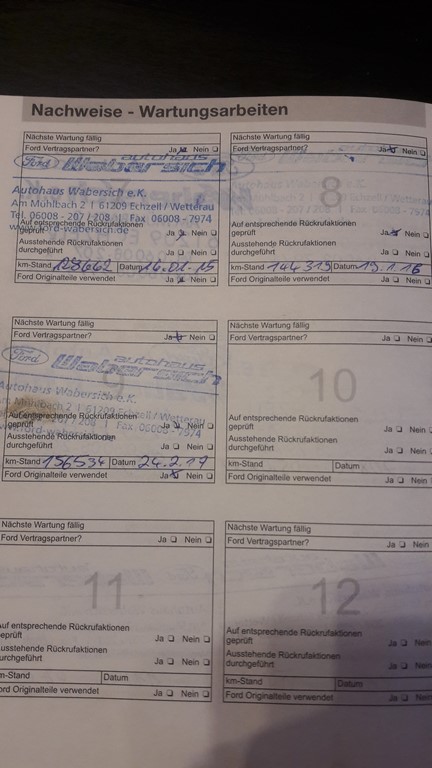 Nachweise - Wartungsarbeiten
Nächste Wartung fällig
Ford Vertragspartner? Ja Nein
Ford autohaus
Wabersich
Autohaus Wabersich e.K.
Am Mühlbach 2 | 61209 Echzell / Wetterau
Tel. 06008 - 207 / 208 | Fax 06008 - 7974
www.ford-wabersich.de
Auf entsprechende Rückrufaktionen
geprüft Ja Nein
Ausstehende Rückrufaktionen
durchgeführt Ja Nein
km-Stand 128662 Datum 14.01.15
Ford Originalteile verwendet Ja Nein
Nächste Wartung fällig
Ford Vertragspartner? Ja Nein
8
Auf entsprechende Rückrufaktionen
geprüft Ja Nein
Ausstehende Rückrufaktionen
durchgeführt Ja Nein
km-Stand 144319 Datum 19.1.16
Ford Originalteile verwendet Ja Nein
Nächste Wartung fällig
Ford Vertragspartner? Ja Nein
9
Ford autohaus
Wabersich
Autohaus Wabersich e.K.
Am Mühlbach 2 | 61209 Echzell / Wetterau
207 / 208 | Fax 06008 - 7974
ford-wabersich
Auf entsprechende Rückrufaktionen
geprüft Ja Nein
Ausstehende Rückrufaktionen
durchgeführt Ja Nein
km-Stand 156534 Datum 24.2.17
Ford Originalteile verwendet Ja Nein
Nächste Wartung fällig
Ford Vertragspartner? Ja Nein
10
Auf entsprechende Rückrufaktionen
geprüft Ja Nein
Ausstehende Rückrufaktionen
durchgeführt Ja Nein
km-Stand Datum
Ford Originalteile verwendet Ja Nein
Nächste Wartung fällig
Ford Vertragspartner? Ja Nein
11
uf entsprechende Rückrufaktionen
eprüft Ja Nein
usstehende Rückrufaktionen
urchgeführt Ja Nein
m-Stand Datum
ord Originalteile verwendet Ja Nein
Nächste Wartung fällig
Ford Vertragspartner? Ja Nein
12
Auf entsprechende Rückrufaktionen
geprüft Ja Nein
Ausstehende Rückrufaktionen
durchgeführt Ja Nein
km-Stand Datum
Ford Originalteile verwendet Ja Nein